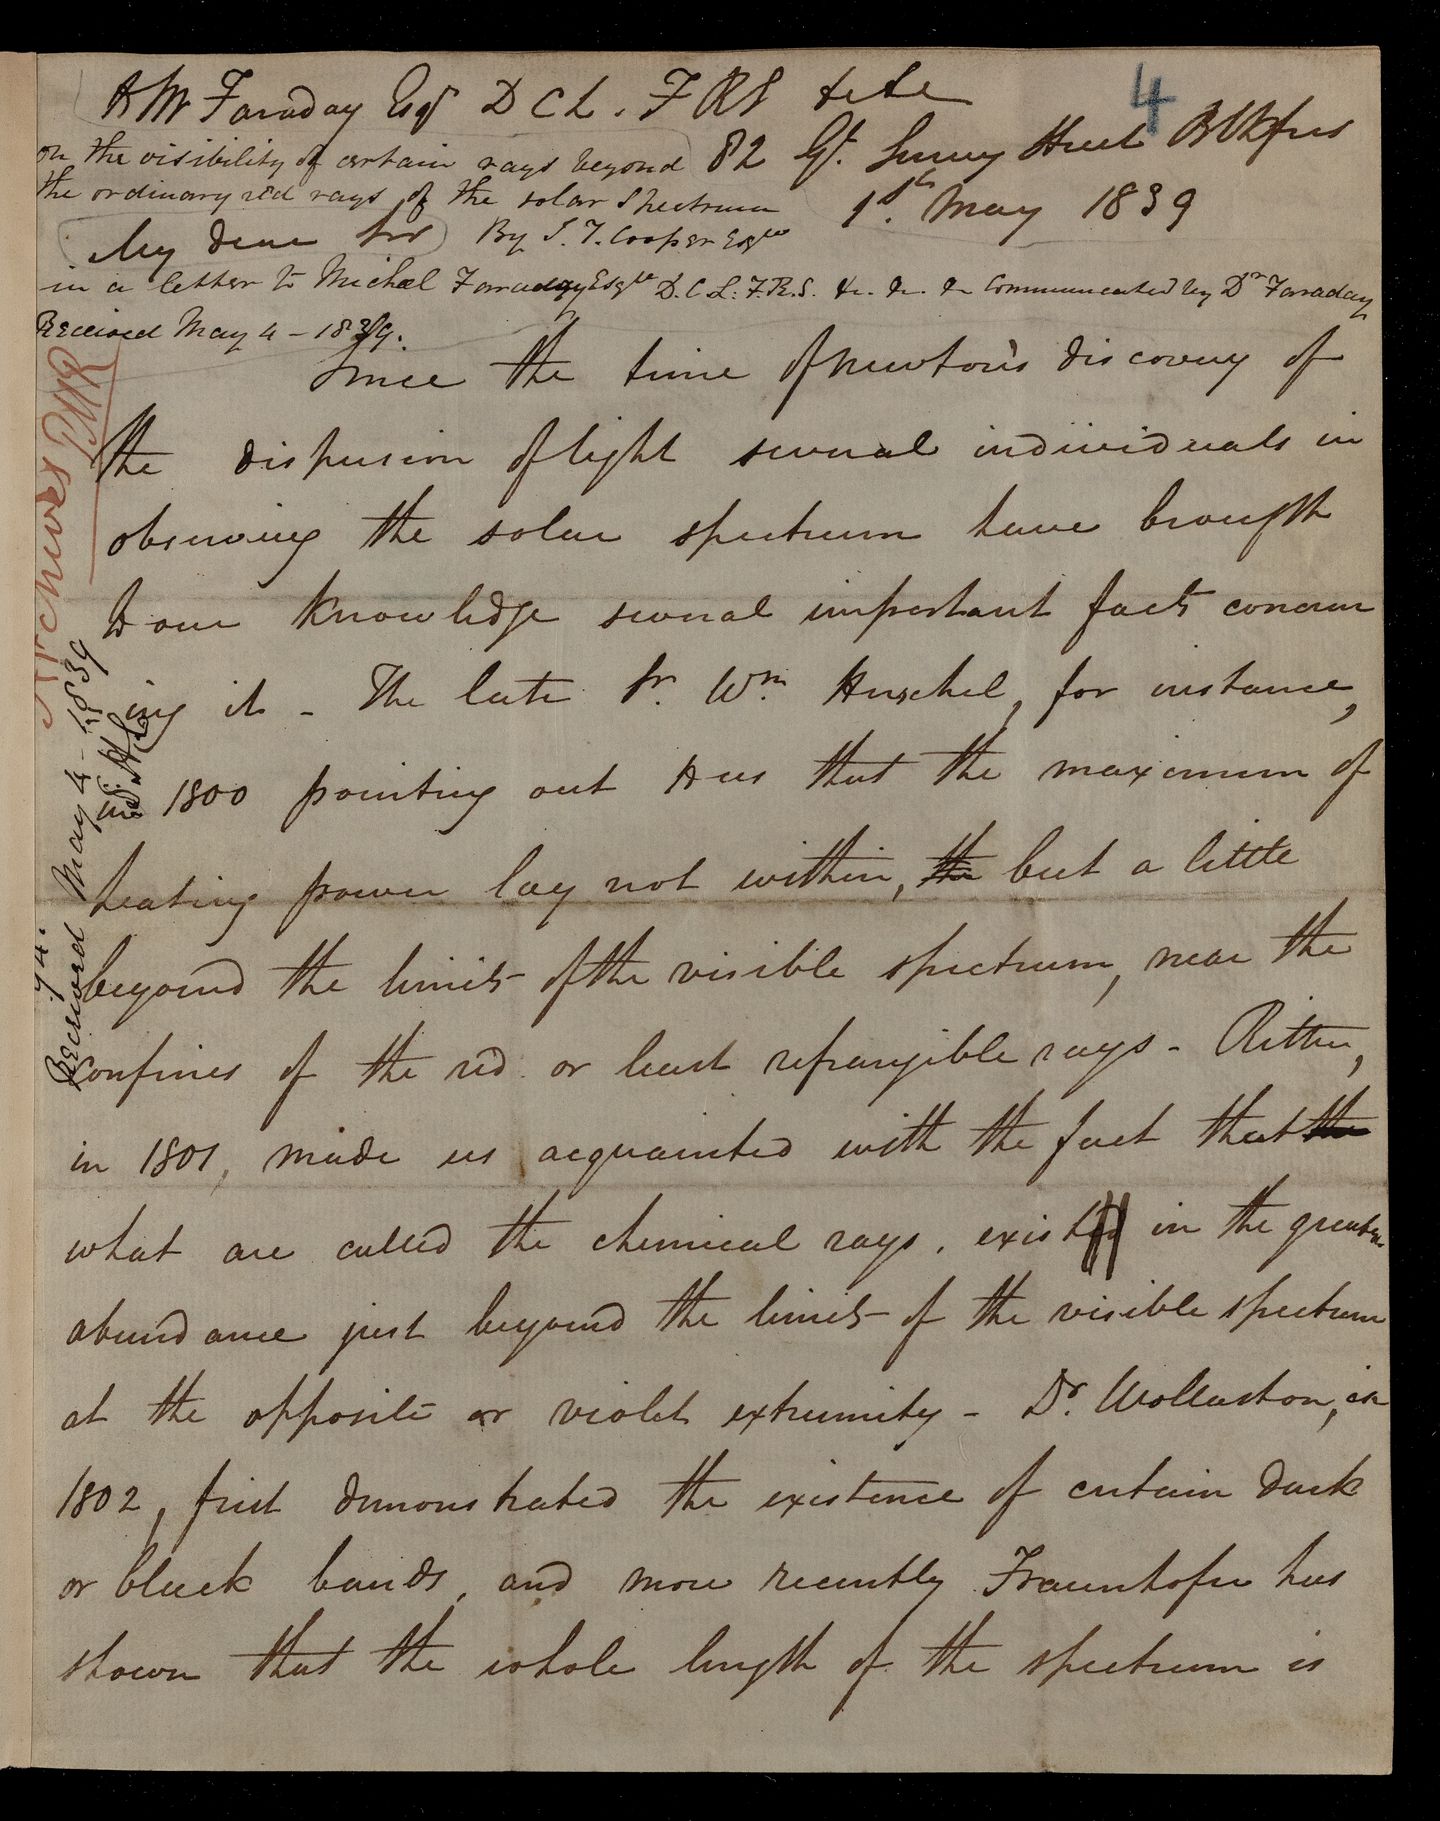 Faraday Esqr D C L. F R S &c &c
4
on the visibility of certain rays beyond
82 Gt. Surrey Street Blkfrs
the ordinary red rays of the solar Spectrum
1st. May 1839
My dear Sir
By J. T. Cooper Esqre
in a letter to Michael Faraday Esqre D. C. L. F. R. S. &c. &c. &c Communicated by Dr Faraday
Received May 4 - 1839.
Since the time of Newton's discovery of
the dispersion of light several individuals in
observing the solar spectrum have brought
to our knowledge several important facts concern
ing it - The late Sr. Wm. Herschel, for instance,
in 1800 pointing out to us that the maximum of
heating power lay not within, the but a little
beyond the limits of the visible spectrum, near the
confines of the red or least refrangible rays - Ritter,
in 1801, made us acquainted with the fact that the
what are called the chemical rays, existed in the greatest
abundance just beyond the limits of the visible spectrum
at the opposite or violet extremity - Dr. Wollaston, in
1802, first demonstrated the existence of certain dark
or black bands, and more recently Fraunhofer has
shown that the whole length of the spectrum is
Archives
Received May 4 - 1839
94.